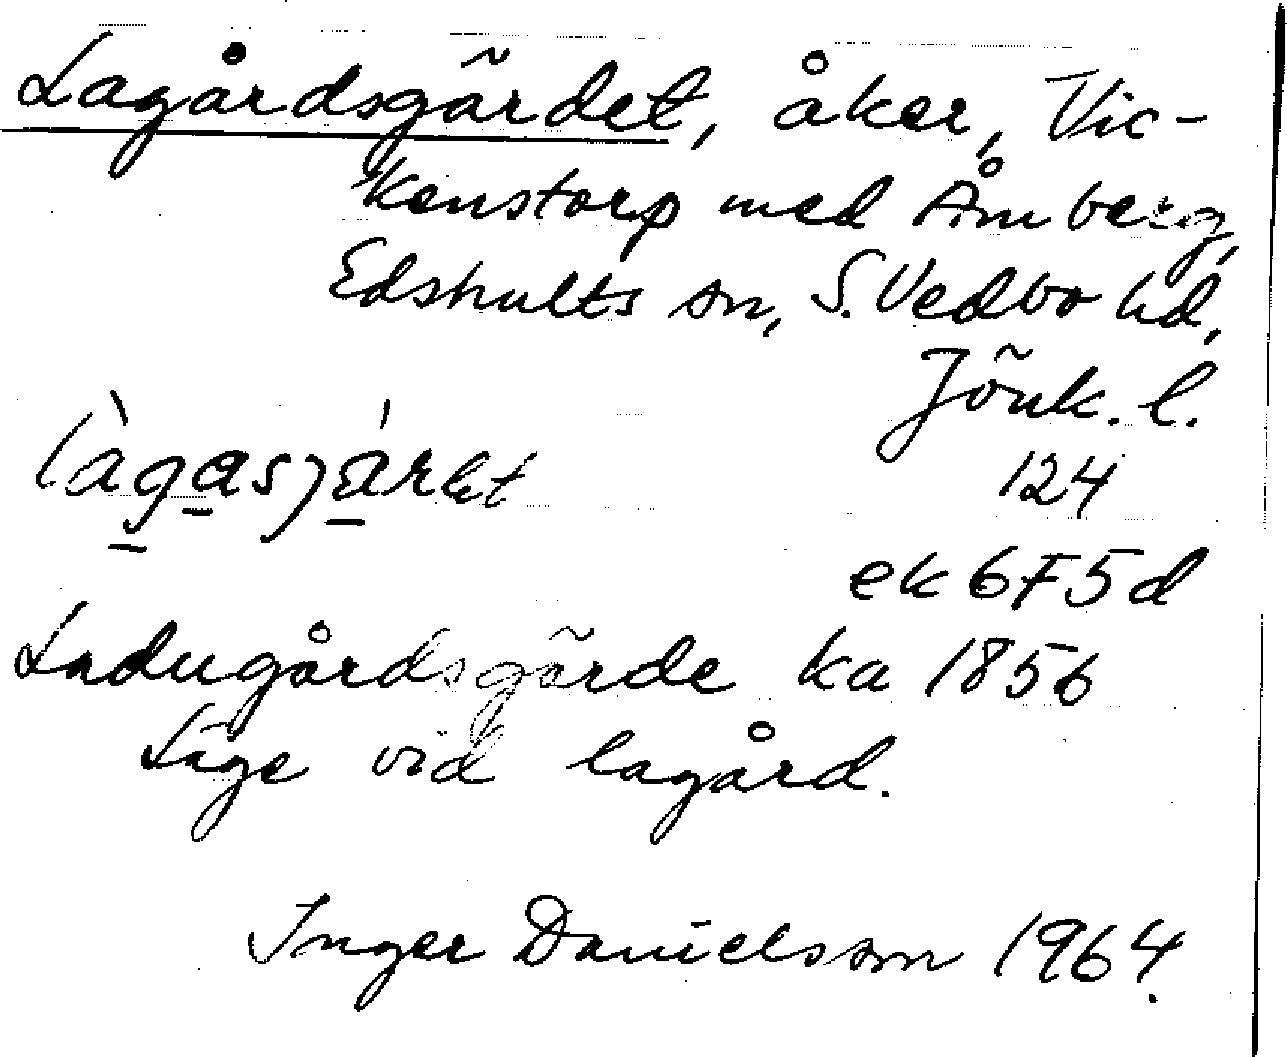 Lagårdsgärdet, åker, Vic-
kenstorp med Åmberg,
Edshults sn, S. Vedbo hd,
Jönk. l.
124
ek 6F5d
Ladugårdsgärde ka 1856
Läge vid lagård.
Inger Danielsson 1964.